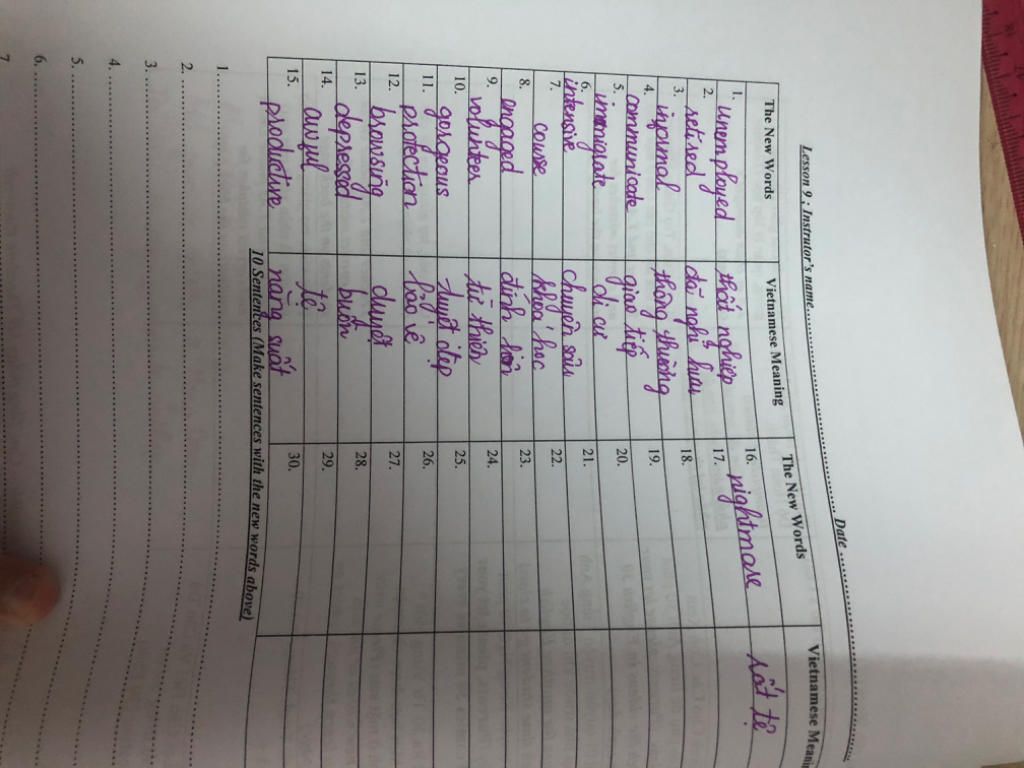 Lesson 9 : Instructor's name.......................................... Date ..............................
The New Words Vietnamese Meaning The New Words Vietnamese Meanin
1. unemployed thất nghiệp 16. nightmare rất tệ
2. retired đã nghỉ hưu 17.
3. informal thông thường 18.
4. communicate giao tiếp 19.
5. immigrate di cư 20.
6. intensive chuyên sâu 21.
7. course khoá học 22.
8. engaged đính hôn 23.
9. volunteer từ thiện 24.
10. gorgeous tuyệt đẹp 25.
11. protection bảo vệ 26.
12. browsing duyệt 27.
13. depressed buồn 28.
14. awful tệ 29.
15. productive năng suất 30.
10 Sentences (Make sentences with the new words above)
1..............................
2..............................
3..............................
4..............................
5..............................
6..............................
7